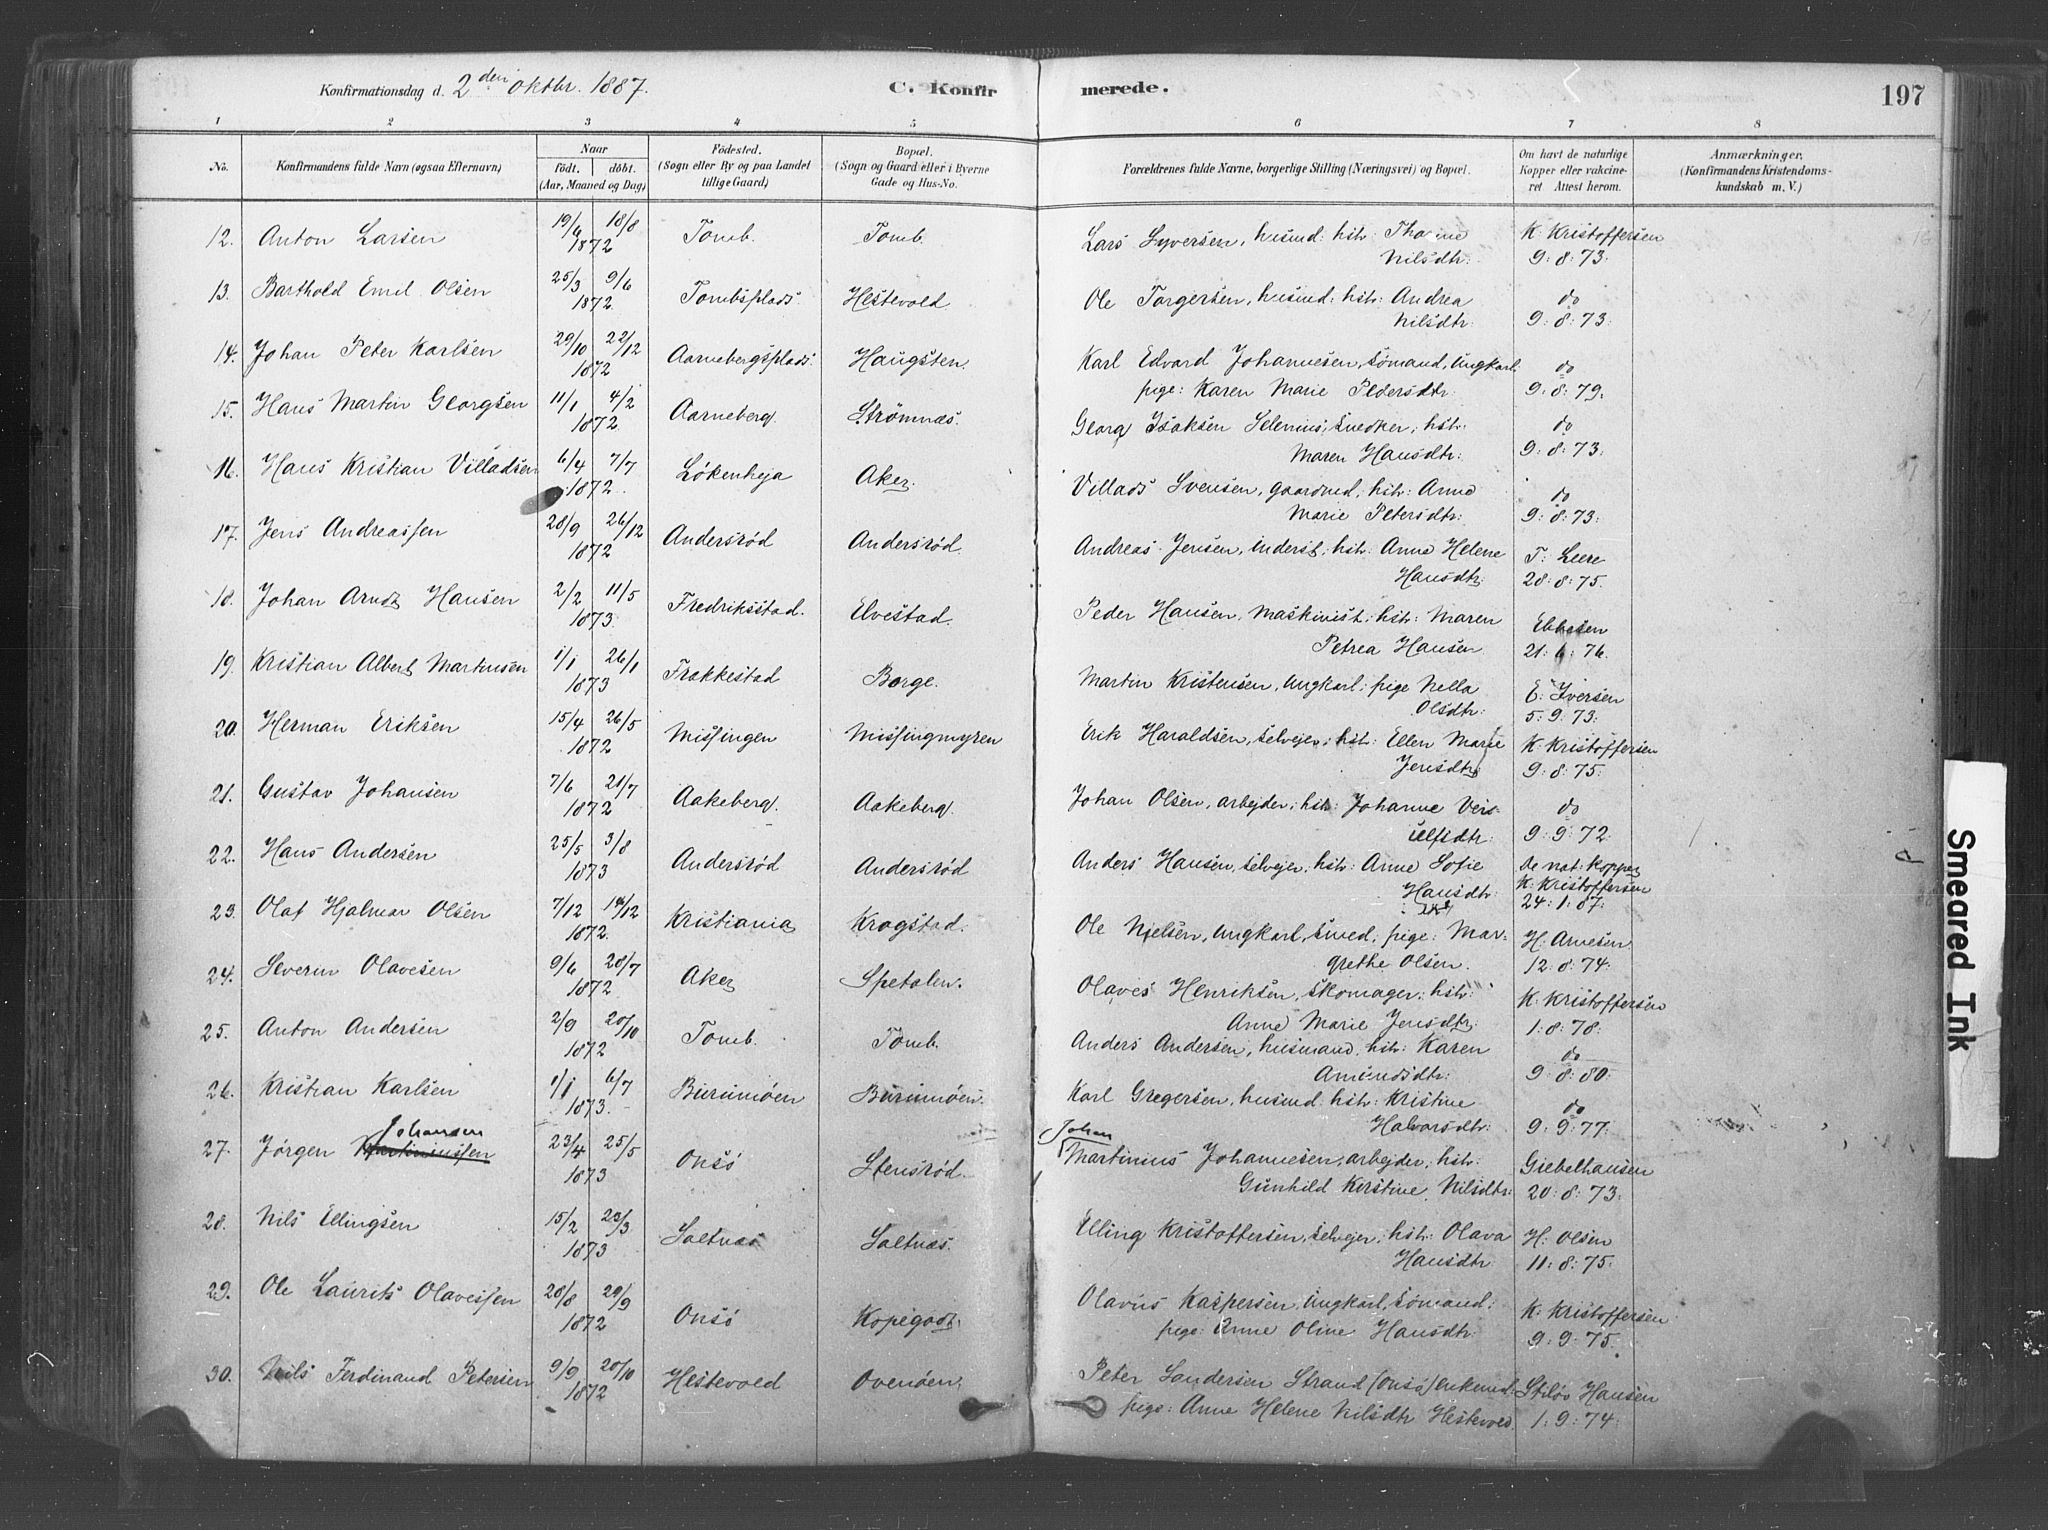 Konfirmationsdag d. 2den Oktbr. 1887.
C. Konfirmerede.
197
1 2 3 4 5 6 7 8
No.
Konfirmandens fulde Navn (ogsaa Efternavn)
Naar
födt. döbt.
(Aar, Maaned og Dag)
Födested.
(Sogn eller By og paa Landet
tillige Gaard)
Bopæl.
(Sogn og Gaard eller i Byerne
Gade og Hus-No.
Forældrenes fulde Navne, borgerlige Stilling (Næringsvei) og Bopæl.
Om havt de naturlige
Kopper eller vakcine-
ret Attest herom.
Anmærkninger.
(Konfirmandens Kristendoms-
kundskab m. V.)
12. Anton Larsen 19/6 18/8 1872 Tomb. Tomb. Lars Syversen, husmd: hstr: Thorine
Nilsdtr: K. Kristoffersen 9:8:73:
13. Barthold Emil Olsen 25/3 9/6 1872 Tombsplads. Hestevold Ole Torgersen, husmd: hstr: Andrea
Nilsdtr: do 9:8:73:
14. Johan Peter Karlsen 29/10 22/12 1872 Aarnebergsplads. Haugsten. Karl Edvard Johannesen, sømand, ungkarl,
pige: Karen Marie Pedersdtr: do 9:8:79:
15. Hans Martin Georgsen 11/1 4/2 1872 Aarneberg. Strömnæs. Georg Isaksen Selenius, snedker, hstr:
Maren Hansdtr: do 9:8:73:
16. Hans Kristian Villadsen 6/4 7/7 1872 Lökenheja Aker. Villads Svensen, gaardmd, hstr: Anne
Marie Petersdtr: do 9:8:73:
17. Jens Andreassen 28/9 26/12 1872 Andersröd Andersröd. Andreas Jensen, inderst, hstr: Anne Helene
Hansdtr: T: Leere 28:8:75.
18. Johan Arndt Hansen 2/2 11/5 1873 Fredriksstad. Elvestad. Peder Hansen, maskinist: hstr: Maren
Petrea Hansen Ebbesen 21:6:76.
19. Kristian Albert Martinsen 1/1 26/1 1873 Frakkestad Borge. Martin Kristensen, ungkarl; pige Nella
Olsdtr: E: Iversen 5:9:73:
20. Herman Eriksen 15/4 26/5 1872 Missingen Missingmyren Erik Haraldsen, selvejer, hstr: Ellen Marie
Jensdtr: K. Kristoffersen 9:8:75:
21. Gustav Johansen 7/6 21/7 1872 Aakeberg. Aakeberg. Johan Olsen, arbejder, hstr: Johanne Vers-
ulfsdtr: do 9:9:72:
22. Hans Andersen 25/5 3/8 1873 Andersröd Andersröd Anders Hansen, selvejer, hstr: Anne Sofie
Hansdtr: de nat: kopper K. Kristoffersen 24:1:87:
23. Olaf Hjalmar Olsen 7/12 14/12 1872. Kristiania Kragstad. Ole Nielsen, ungkarl, smed, pige: Mar-
grethe Olsen. H: Arnesen 12:8:74:
24. Severin Olavesen 9/6 28/7 1872 Aker Spetalen. Olaves Henriksen, skomager: hstr:
Anne Marie Jensdtr: K. Kristoffersen 1:8:78:
25. Anton Andersen 2/9 20/10 1872 Tomb. Tomb. Anders Andersen, husmand, hstr: Karen
Amundsdtr: do 9:8:80:
26. Kristian Karlsen 1/1 6/7 1873. Burumöen Burumöen. Karl Gregersen, husmd: hstr: Kristine
Halvorsdtr: do 9:9:77:
27. Jørgen Martiniussen Johansen 23/4 25/5 1873 Onsö Stensröd. Johan
Martinius Johannesen, arbejder, hstr:
Gunhild Kirstine Nilsdtr: Giebelhausen 20:8:73:
28. Nils Ellingsen 15/2 23/3 1873 Saltnæs Saltnæs. Elling Kristoffersen, selvejer, hstr: Olava
Hansdtr H: Olsen 11:8:75:
29. Ole Laurits Olavessen 28/8 29/9 1872 Onsö Kopegodt. Olavus Kaspersen, ungkarl, sømand:
pige: Anne Oline Hansdtr: K. Kristoffersen 9:9:75.
30. Nils Ferdinand Petersen 9/9 20/10 1872 Hestevold Ovenöen. Peter Sandersen Strand (Onsö) enkemd:
pige: Anne Helene Nilsdtr Hestevold Stiløv Hansen 1:9:74:
Smeared Ink